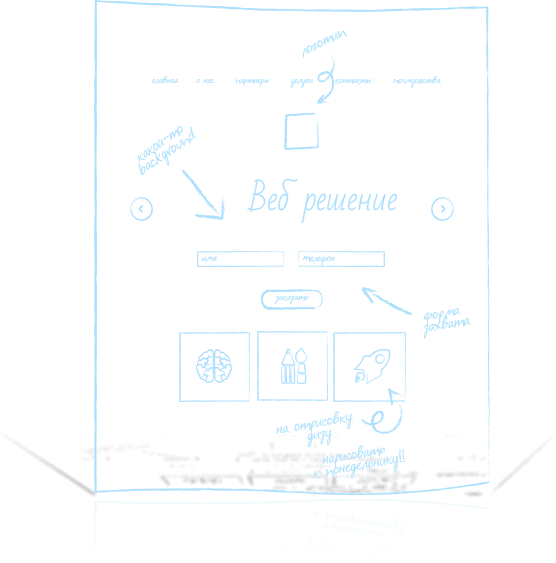 логотип
главная о нас партнеры услуги контакты преимущества
какой-то
background
Веб решение
имя телефон
заказать
форма
захвата
на отрисовку
дизу
нарисовать
к понедельнику!!